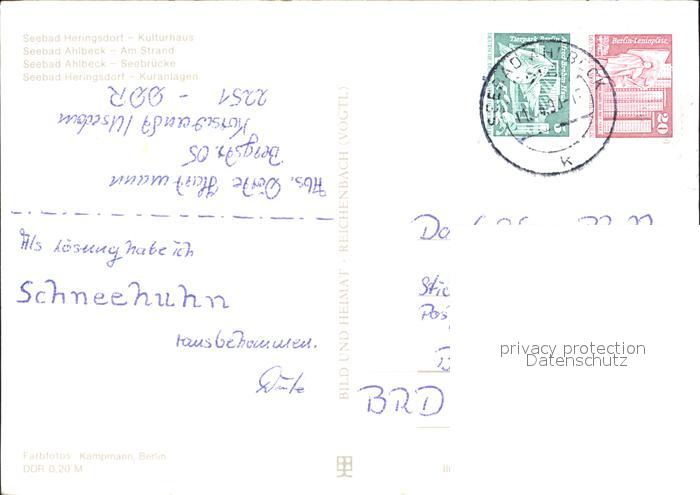 Seebad Heringsdorf – Kulturhaus
Seebad Ahlbeck – Am Strand
Seebad Ahlbeck – Seebrücke
Seebad Heringsdorf – Kuranlagen
Abs. Dörte Hartmann
Bergstr. 05
Korswandt / Usedom
2251 - DDR
Als Lösung habe ich
Schneehuhn
rausbekommen.
Dörte
Farbfotos: Kampmann, Berlin
DDR 0,20 M
BILD UND HEIMAT · REICHENBACH (VOGTL)
Tierpark Berlin
5
Berlin-Leninplatz
20
SEEBAD AHLBECK
k
BRD
privacy protection
Datenschutz